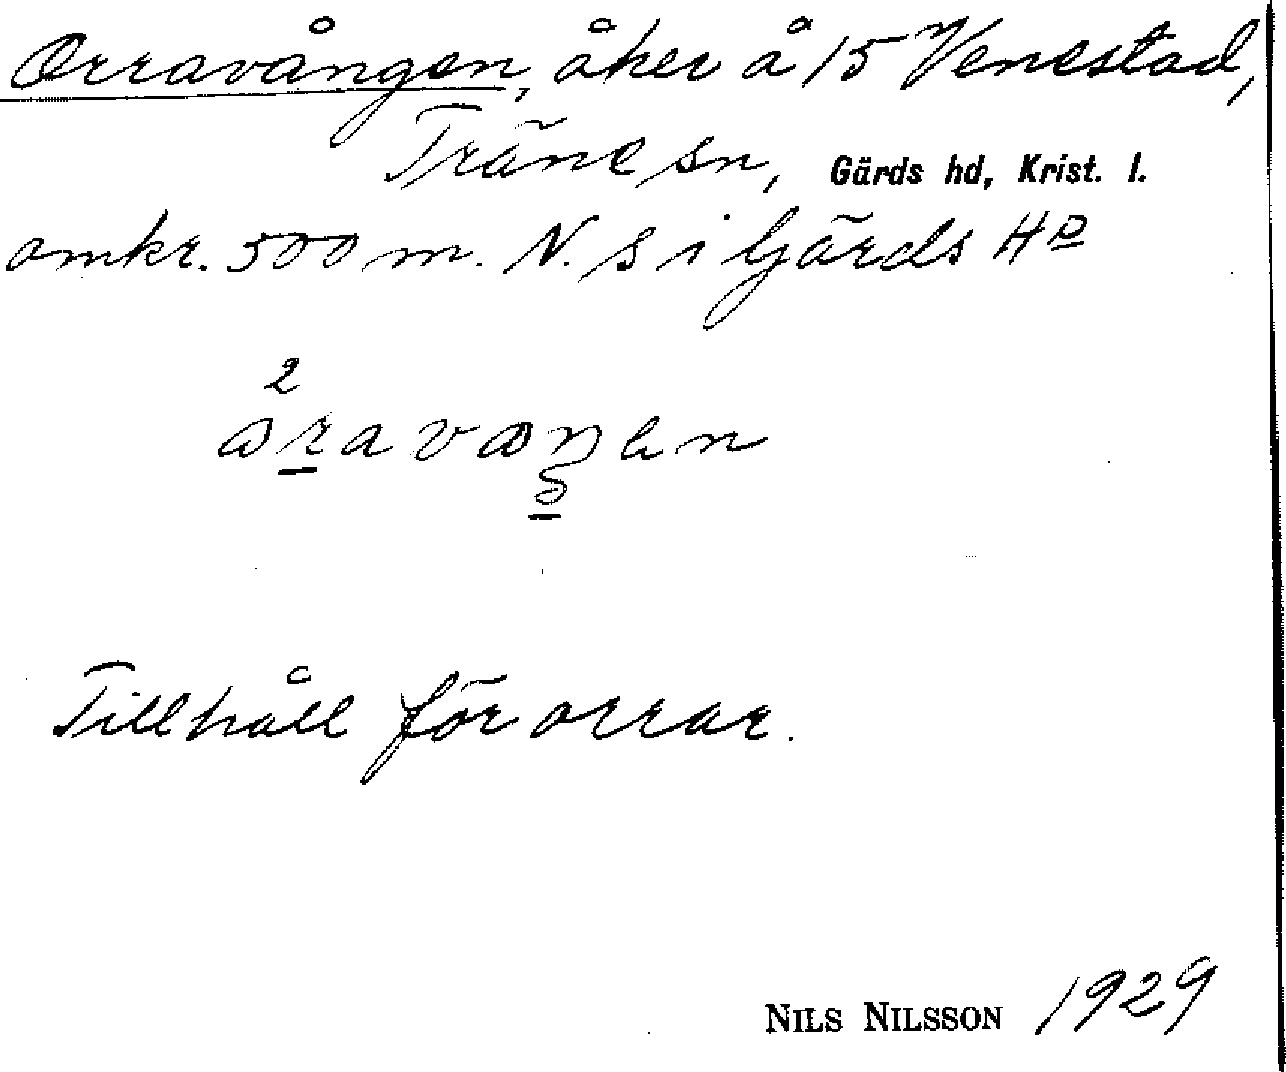 Orravången, åker å 15 Venestad,
Träne sn, Gärds hd, Krist. l.
omkr. 500 m. N. /s i Gärds Hd
2
åravaŋen
Tillhåll för orrar.
NILS NILSSON 1929